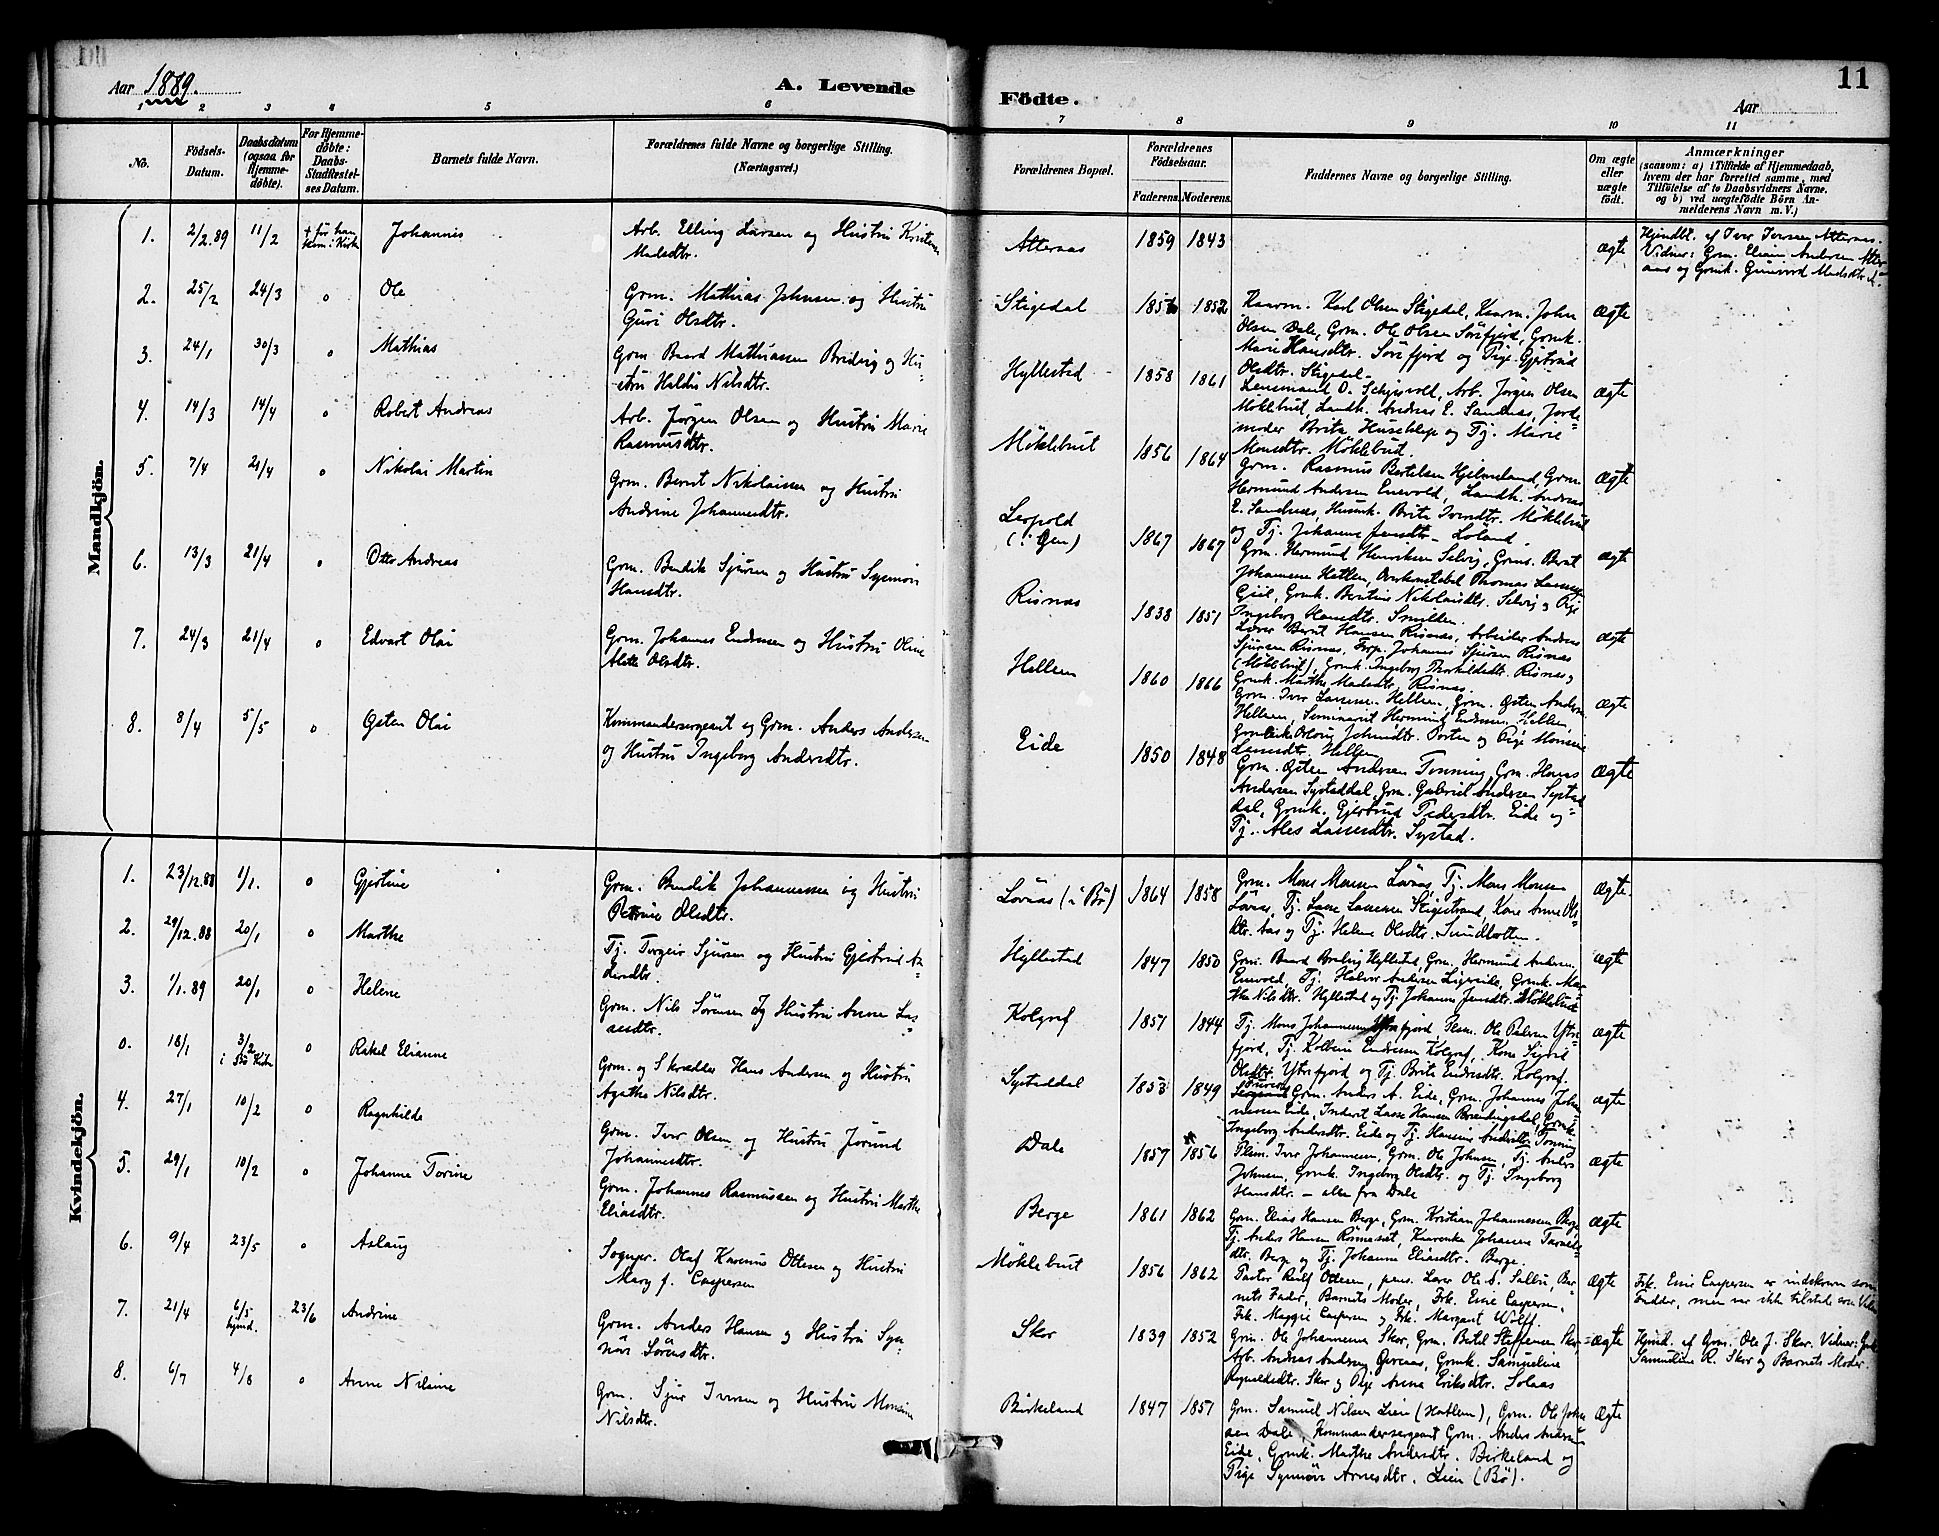 Aar 1889.
A. Levende
Födte.
Aar
11
1 2 3 4 5 6 7 8 9 10 11
No.
Födsels-Datum.
Daabsdatum (ogsaa for Hjemme-döbte).
For Hjemme-döbte: Daabs-Stadfæstel-ses Datum.
Barnets fulde Navn.
Forældrenes fulde Navne og borgerlige Stilling. (Næringsvei.)
Forældrenes Bopæl.
Forældrenes Födselsaar.
Faderens. Moderens.
Faddernes Navne og borgerlige Stilling.
Om ægte eller uægte födt.
Anmærkninger
(saasom: a) i Tilfælde af Hjemmedaab, hvem der har forrettet samme, med Tilföielse af to Daabsvidners Navne. og b) ved uægtefödte Börn An-melderens Navn m. V.)
Mandkjön.
1. 2/2.89 11/2 Johannes
Arb. Elling Larsen og Hustru Kristine
Madsdtr.
Atternas 1859 1843 Ægte
Hjmdbt. af Iver Iversen Atternas.
Vidner: Grm. Elian Andersen Atter
aas og Grmk. Gunvord Madsdtr.
2. 25/2 24/3 o Ole
Grm. Mathias Johnsen og Hustru
Guri Olsdtr.
Stigedal 1852 Ægte
Kaarm. Karl Olsen Stigedal, Kaarm. John
Olsen Dale, Grm. Ole Olsen Sörfjord, Grmk.
Marie Hansdtr. Sörfjord og Pige Gjertrud
Olsdtr. Stigedal
3. 24/1 30/3 o Mathias
Grm Baard Mathiassen Breivig og Hu-
stru Haldis Nilsdtr.
Hyllestad 1858 1861 Ægte
Lensmand O. Schjesvold, Arb. Jörgen Olsen
Möklebust, Landh. Andreas E. Sandnæs, Jorde-
moder Brita Husetklep og Tj. Marie
Monsdtr. Möklebust.
4. 14/3 14/4 o Robert Andreas
Arb. Jörgen Olsen og Hustru Marie
Rasmusdtr.
Möklebust 1856 1864 Ægte
Grm. Rasmus Bertelsen Hjelmeland, Grm.
Hermund Andersen Enevold, Landh. Andreas
E. Sandnæs, Husmk. Brite Iversdtr. Möklebust
og Tj. Johanne Jensdtr. Löland
5. 7/4 21/4 o Nikolai Martin
Grm. Bernt Nikolaisen og Hustru
Andrine Johannesdtr.
Leopold
1867 1867 Ægte
Grm. Hermund Henriksen Selvig, Grms. Bernt
Johannesen Hatlem, Overkonstabel Thomas Larsen
Geil, Grmk. Bertine Nikolaisdtr. Selvig og Pige
Ingeborg Hansdtr. Smilden.
6. 13/3 21/4 o Otto Andreas
Grm. Bendik Sjursen og Hustru Synnöv
Hansdtr.
Risnæs 1838 1851 Ægte
Lærer Bernt Hansen Risnæs, Arbeider Andreas
Sjursen Risnæs, Johannes Sjursen Risnæs
(Möklebust), Grmk. Ingeborg Thorkildsdtr. Risnæs,
Grmk. Marthe Madsdtr. Risnæs.
7. 24/3 21/4 o Edvart Olai
Grm. Johannes Endresen og Hustru Oline
Alette Olsdtr.
Hellem 1860 1866 Ægte
Grm. Iver Larsen Hellem, Grm. Østen Andersen
Hellem, Seminarist Hermund Endresen Hellem
Porten og Pige Monsine
Larsdtr. Hellem
8. 8/4 5/5 o Østen Olai
Kommandersergeant og Grm. Anders Andersen
og Hustru Ingeborg Andersdtr.
Eide 1850 1848 Ægte
Grm. Østen Andersen Tenning, Grm. Hans
Andersen Systaddal, Grm. Gabriel Andersen Systad
dal, Grmk. Gjertrud Pedersdtr. Eide og
Tj. Ales Larsdtr. Systad.
Kvindekjön.
1. 23/12.88 1/1. o Gjertine
Grm. Bendik Johannessen og Hustru
Petrine Olsdtr.
Lövaas (i Bö) 1864 1858 Ægte
Grm. Mons Monsen Lövaas, Tj. Mons Monsen
Lövaas, Tj. Lasse Lassesen Stigestrand, Kone Anne Ols-
dtr. Aas og Tj. Helene Olsdtr. Sundbotten.
2. 29/12.88 20/1 o Marthe
Tj. Torgeir Sjursen og Hustru Gjertrud An-
dersdtr.
Hyllestad 1847 1850 Ægte
Grm. Baard Breivig Hyllestad, Grm. Hermund Andersen
Enevold, Tj. Halvor Andersen Ligereide, Grmk. Mar-
the Nilsdtr. Hyllestad og Tj. Johanne Jensdtr. Möklebust
3. 1/1.89 20/1 o Helene
Grm. Nils Sörensen og Hustru Anne Las-
sesdtr.
Kolgrof 1851 1844 Ægte
Tj. Mons Johannesen Ytrefjord, Ole Pedersen Ytre-
fjord, Tj. Kolbein Endresen Kolgrof, Kone Sigrid
Olsdtr. Ytrefjord og Tj. Brite Endresdtr. Kolgrof.
o. 18/1 3/2 o Rakel Elianne
Grm. og Skrædder Hans Andersen og Hustru
Agathe Nilsdtr.
Systaddal 1853 1849 Ægte
Grm. Anders A. Eide, Grm. Johannes Johan
nesen Eide, Inderst Lasse Hansen Brendingsdal, Grmk.
Ingeborg Andersdtr. Eide og Tj. Hansine Andersdtr. Tenning
4. 27/1 10/2 o Ragnhilde
Grm. Iver Olsen og Hustru Jörund
Johannesdtr.
Dale 1857 1856 Ægte
Iver Johannesen, Grm. Ole Johnsen, Tj. Anders
Johnsen, Grmk. Ingeborg Olsdtr. og Tj. Ingeborg
Hansdtr. – alle fra Dale
5. 29/1 10/2 o Johanne Torine
Grm. Johannes Rasmussen og Hustru Marthe
Eliasdtr.
Berge 1861 1862 Ægte
Grm. Elias Hansen Berge, Grm. Kristian Johannessen Berge,
Tj. Anders Hansen Johanne
dtr. Berge og Tj. Johanne Eliasdtr. Berge.
6. 9/4 23/5 o Aslaug
Sognepr. Olaf Karenius Ottesen og Hustru
Mary f. Caspersen
Möklebust 1856 1862 Ægte
Pastor Rolf Ottesen, pens. Lærer Ole A. Salbu, Bar-
nets Fader, Barnets Moder, Frk. Esie Caspersen,
Frk. Maggie Caspersen og Frk. Margaret Wolff.
Frk. Esie Caspersen er indskreven som
Fadder, men var ikke tilstede
7. 21/4 6/5 hjmd. 23/6 Andrine
Grm. Anders Hansen og Hustru Syn-
növ Sörensdtr.
Skor 1839 1852 Ægte
Grm. Ole Johannesen Skor, Grm. Bertel Steffensen Skor,
Arb. Andreas Andersen Grmk. Samueline
Skor og Pige Anna Eriksdtr. Solaas
Hjmd. af Grm. Ole J. Skor. Vidner: Grmk.
Samueline R. Skor og Barnets Moder.
8. 6/7 4/8 o Anne Nilsine
Grm. Sjur Iversen og Hustru Monsine
Nilsdtr.
Birkeland 1847 1851 Ægte
Grm. Samuel Nilsen Lien (Hatlem), Grm. Ole Johan
sen Dale, Kommandersergeant Grm. Anders Andersen
Eide, Grmk. Marthe Andersdtr. Birkeland og
Pige Synnöve Arnesdtr. Lien (Bö).